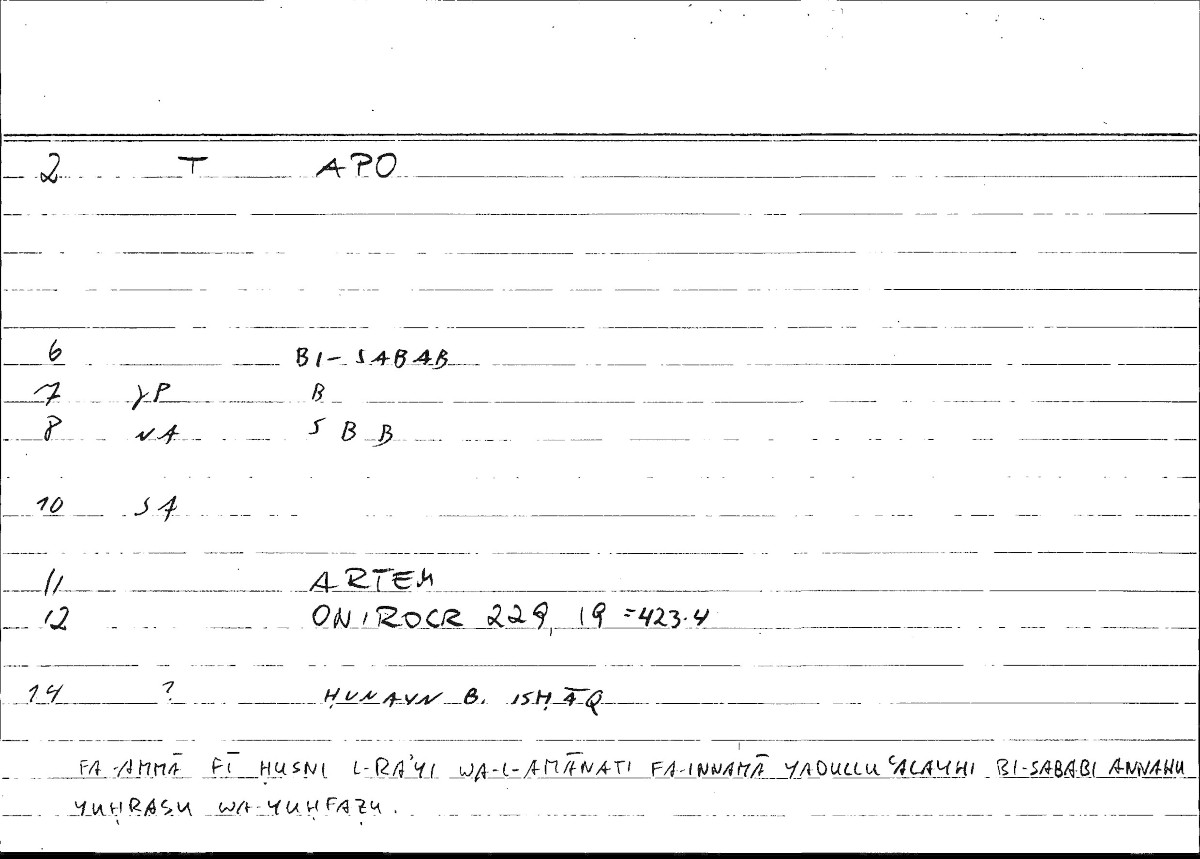 2 T APO
6 BI-SABAB
7 γP B
8 NA S B B
10 SA
11 ARTEM
12 ONIROCR 229, 19 =423.4
14 ? ḤUNAYN B. ISḤĀQ
FA-AMMĀ FĪ ḤUSNI L-RAʾYI WA-L-AMĀNATI FA-INNAMĀ YADULLU ʿALAYHI BI-SABABI ANNAHU
YUḤRASU WA-YUḤFAẒU.